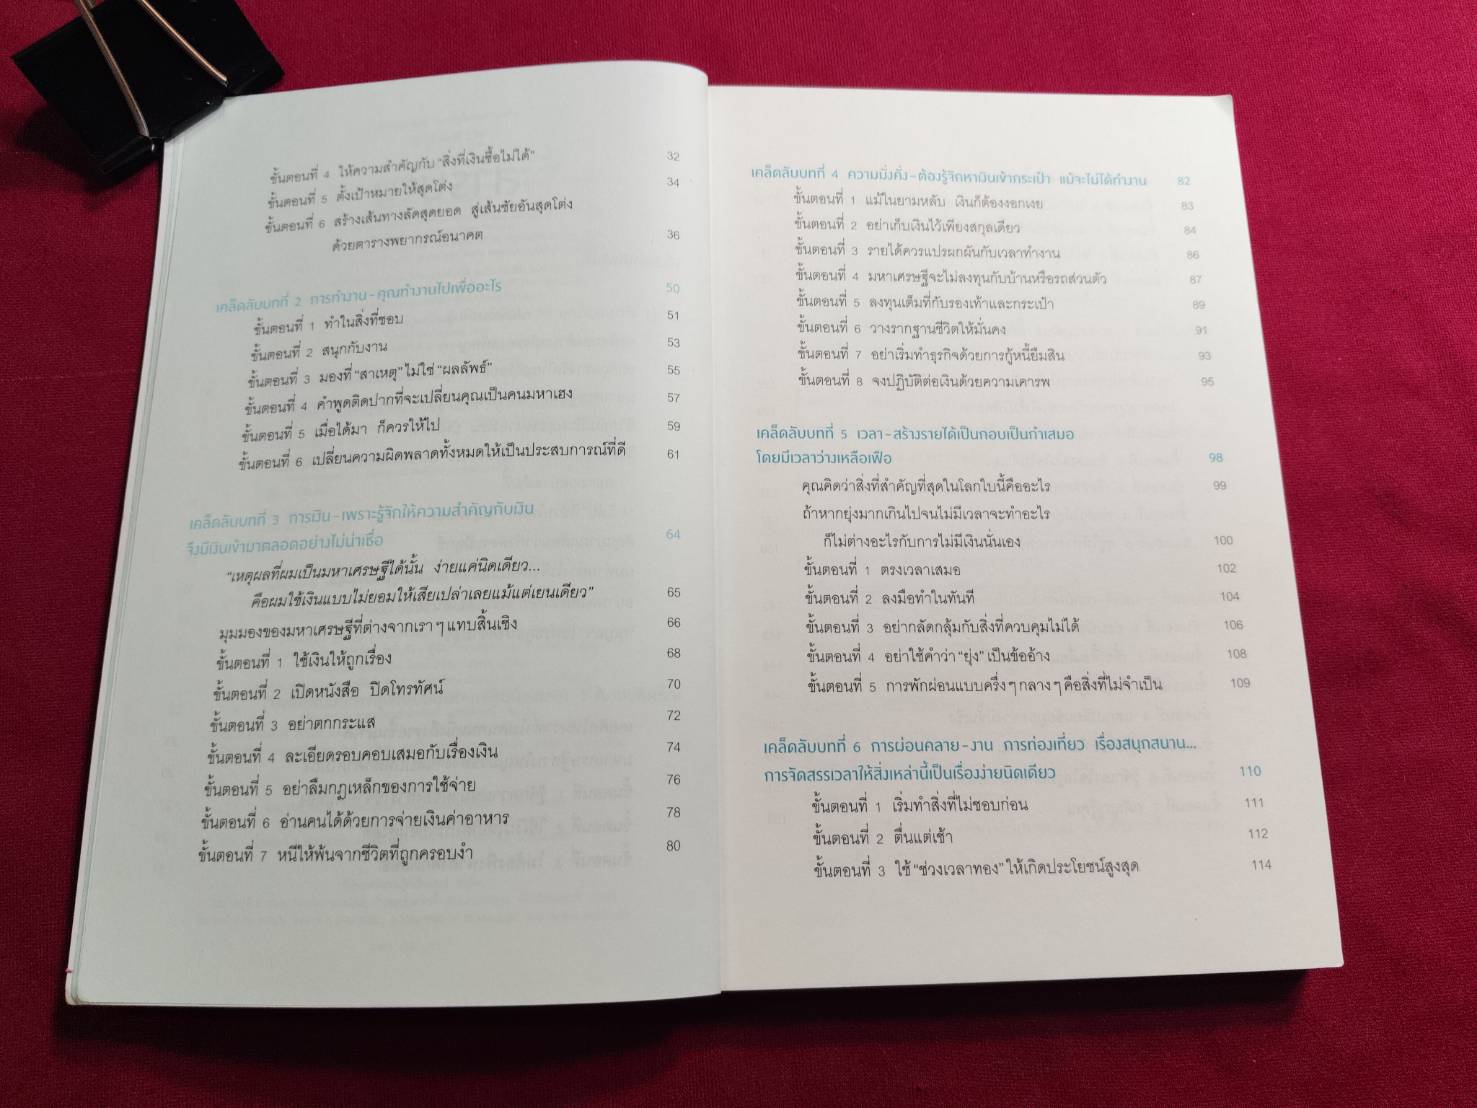 ขั้นตอนที่ 4 ให้ความสำคัญกับ "สิ่งที่เงินซื้อไม่ได้" 32
ขั้นตอนที่ 5 ตั้งเป้าหมายให้สุดโต่ง 34
ขั้นตอนที่ 6 สร้างเส้นทางลัดสุดยอด สู่เส้นชัยอันสุดโต่ง
ด้วยตารางพยากรณ์อนาคต 36
เคล็ดลับบทที่ 2 การทำงาน-คุณทำงานไปเพื่ออะไร 50
ขั้นตอนที่ 1 ทำในสิ่งที่ชอบ 51
ขั้นตอนที่ 2 สนุกกับงาน 53
ขั้นตอนที่ 3 มองที่ "สาเหตุ" ไม่ใช่ "ผลลัพธ์" 55
ขั้นตอนที่ 4 คำพูดติดปากที่จะเปลี่ยนคุณเป็นคนมหาเฮง 57
ขั้นตอนที่ 5 เมื่อได้มา ก็ควรให้ไป 59
ขั้นตอนที่ 6 เปลี่ยนความผิดพลาดทั้งหมดให้เป็นประสบการณ์ที่ดี 61
เคล็ดลับบทที่ 3 การเงิน-เพราะรู้จักให้ความสำคัญกับเงิน
จึงมีเงินเข้ามาตลอดอย่างไม่น่าเชื่อ 64
"เหตุผลที่ผมเป็นมหาเศรษฐีได้นั้น ง่ายแค่นิดเดียว...
คือผมใช้เงินแบบไม่ยอมให้เสียเปล่าเลยแม้แต่เยนเดียว" 65
มุมมองของมหาเศรษฐีที่ต่างจากเรา ๆ แทบสิ้นเชิง 66
ขั้นตอนที่ 1 ใช้เงินให้ถูกเรื่อง 68
ขั้นตอนที่ 2 เปิดหนังสือ ปิดโทรทัศน์ 70
ขั้นตอนที่ 3 อย่าตกกระแส 72
ขั้นตอนที่ 4 ละเอียดรอบคอบเสมอกับเรื่องเงิน 74
ขั้นตอนที่ 5 อย่าลืมกฎเหล็กของการใช้จ่าย 76
ขั้นตอนที่ 6 อ่านคนได้ด้วยการจ่ายเงินค่าอาหาร 78
ขั้นตอนที่ 7 หนีให้พ้นจากชีวิตที่ถูกครอบงำ 80
เคล็ดลับบทที่ 4 ความมั่งคั่ง-ต้องรู้จักหาเงินเข้ากระเป๋า แม้จะไม่ได้ทำงาน 82
ขั้นตอนที่ 1 แม้ในยามหลับ เงินก็ต้องงอกเงย 83
ขั้นตอนที่ 2 อย่าเก็บเงินไว้เพียงสกุลเดียว 84
ขั้นตอนที่ 3 รายได้ควรแปรผกผันกับเวลาทำงาน 86
ขั้นตอนที่ 4 มหาเศรษฐีจะไม่ลงทุนกับบ้านหรือรถส่วนตัว 87
ขั้นตอนที่ 5 ลงทุนเต็มที่กับรองเท้าและกระเป๋า 89
ขั้นตอนที่ 6 วางรากฐานชีวิตให้มั่นคง 91
ขั้นตอนที่ 7 อย่าเริ่มทำธุรกิจด้วยการกู้หนี้ยืมสิน 93
ขั้นตอนที่ 8 จงปฏิบัติต่อเงินด้วยความเคารพ 95
เคล็ดลับบทที่ 5 เวลา-สร้างรายได้เป็นกอบเป็นกำเสมอ
โดยมีเวลาว่างเหลือเฟือ 98
คุณคิดว่าสิ่งที่สำคัญที่สุดในโลกใบนี้คืออะไร 99
ถ้าหากยุ่งมากเกินไปจนไม่มีเวลาจะทำอะไร
ก็ไม่ต่างอะไรกับการไม่มีเงินนั่นเอง 100
ขั้นตอนที่ 1 ตรงเวลาเสมอ 102
ขั้นตอนที่ 2 ลงมือทำในทันที 104
ขั้นตอนที่ 3 อย่ากลัดกลุ้มกับสิ่งที่ควบคุมไม่ได้ 106
ขั้นตอนที่ 4 อย่าใช้คำว่า "ยุ่ง" เป็นข้ออ้าง 108
ขั้นตอนที่ 5 การพักผ่อนแบบครึ่ง ๆ กลาง ๆ คือสิ่งที่ไม่จำเป็น 109
เคล็ดลับบทที่ 6 การผ่อนคลาย-งาน การท่องเที่ยว เรื่องสนุกสนาน...
การจัดสรรเวลาให้สิ่งเหล่านี้เป็นเรื่องง่ายนิดเดียว 110
ขั้นตอนที่ 1 เริ่มทำสิ่งที่ไม่ชอบก่อน 111
ขั้นตอนที่ 2 ตื่นแต่เช้า 112
ขั้นตอนที่ 3 ใช้ "ช่วงเวลาทอง" ให้เกิดประโยชน์สูงสุด 114